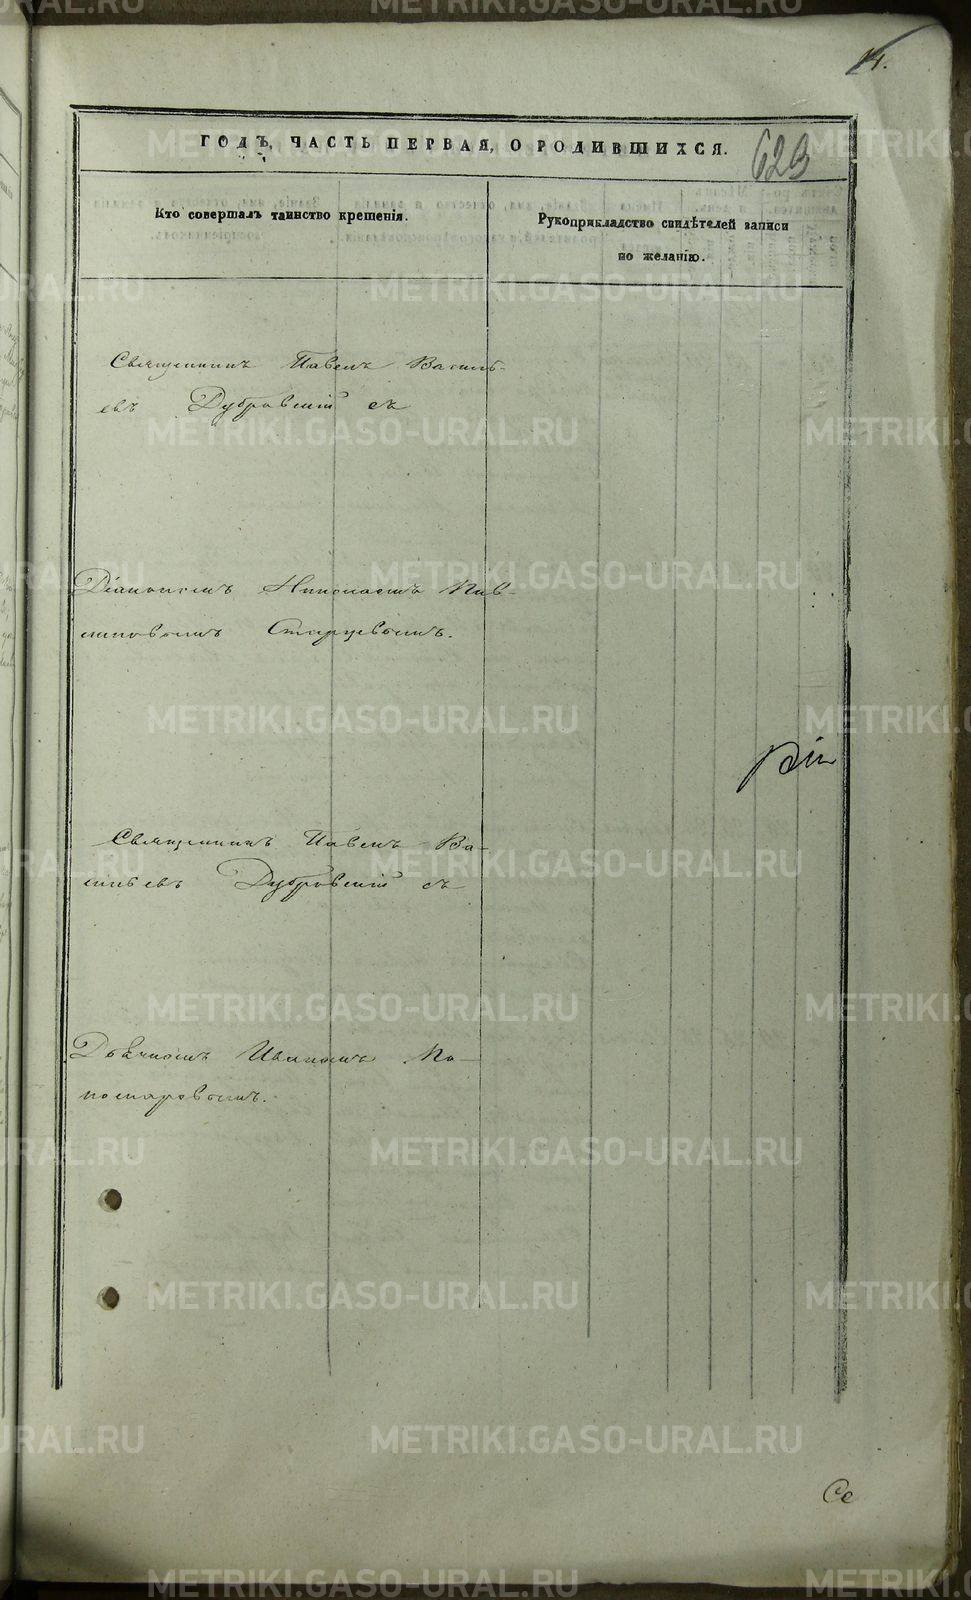 14.
ГОДЪ, ЧАСТЬ ПЕРВАЯ, О РОДИВШИХСЯ.
623
Кто совершалъ таинство крещенія.
Рукоприкладство свидѣтелей записи
по желанію.
Священникъ Павелъ Василь-
евъ Дубровскій съ
Діакономъ Николаемъ
Старцевымъ.
Священникъ Павелъ Ва-
сильевъ Дубровскій съ
Дьячкомъ Иваномъ По-
номаровымъ.
Се
METRIKI.GASO-URAL.RU